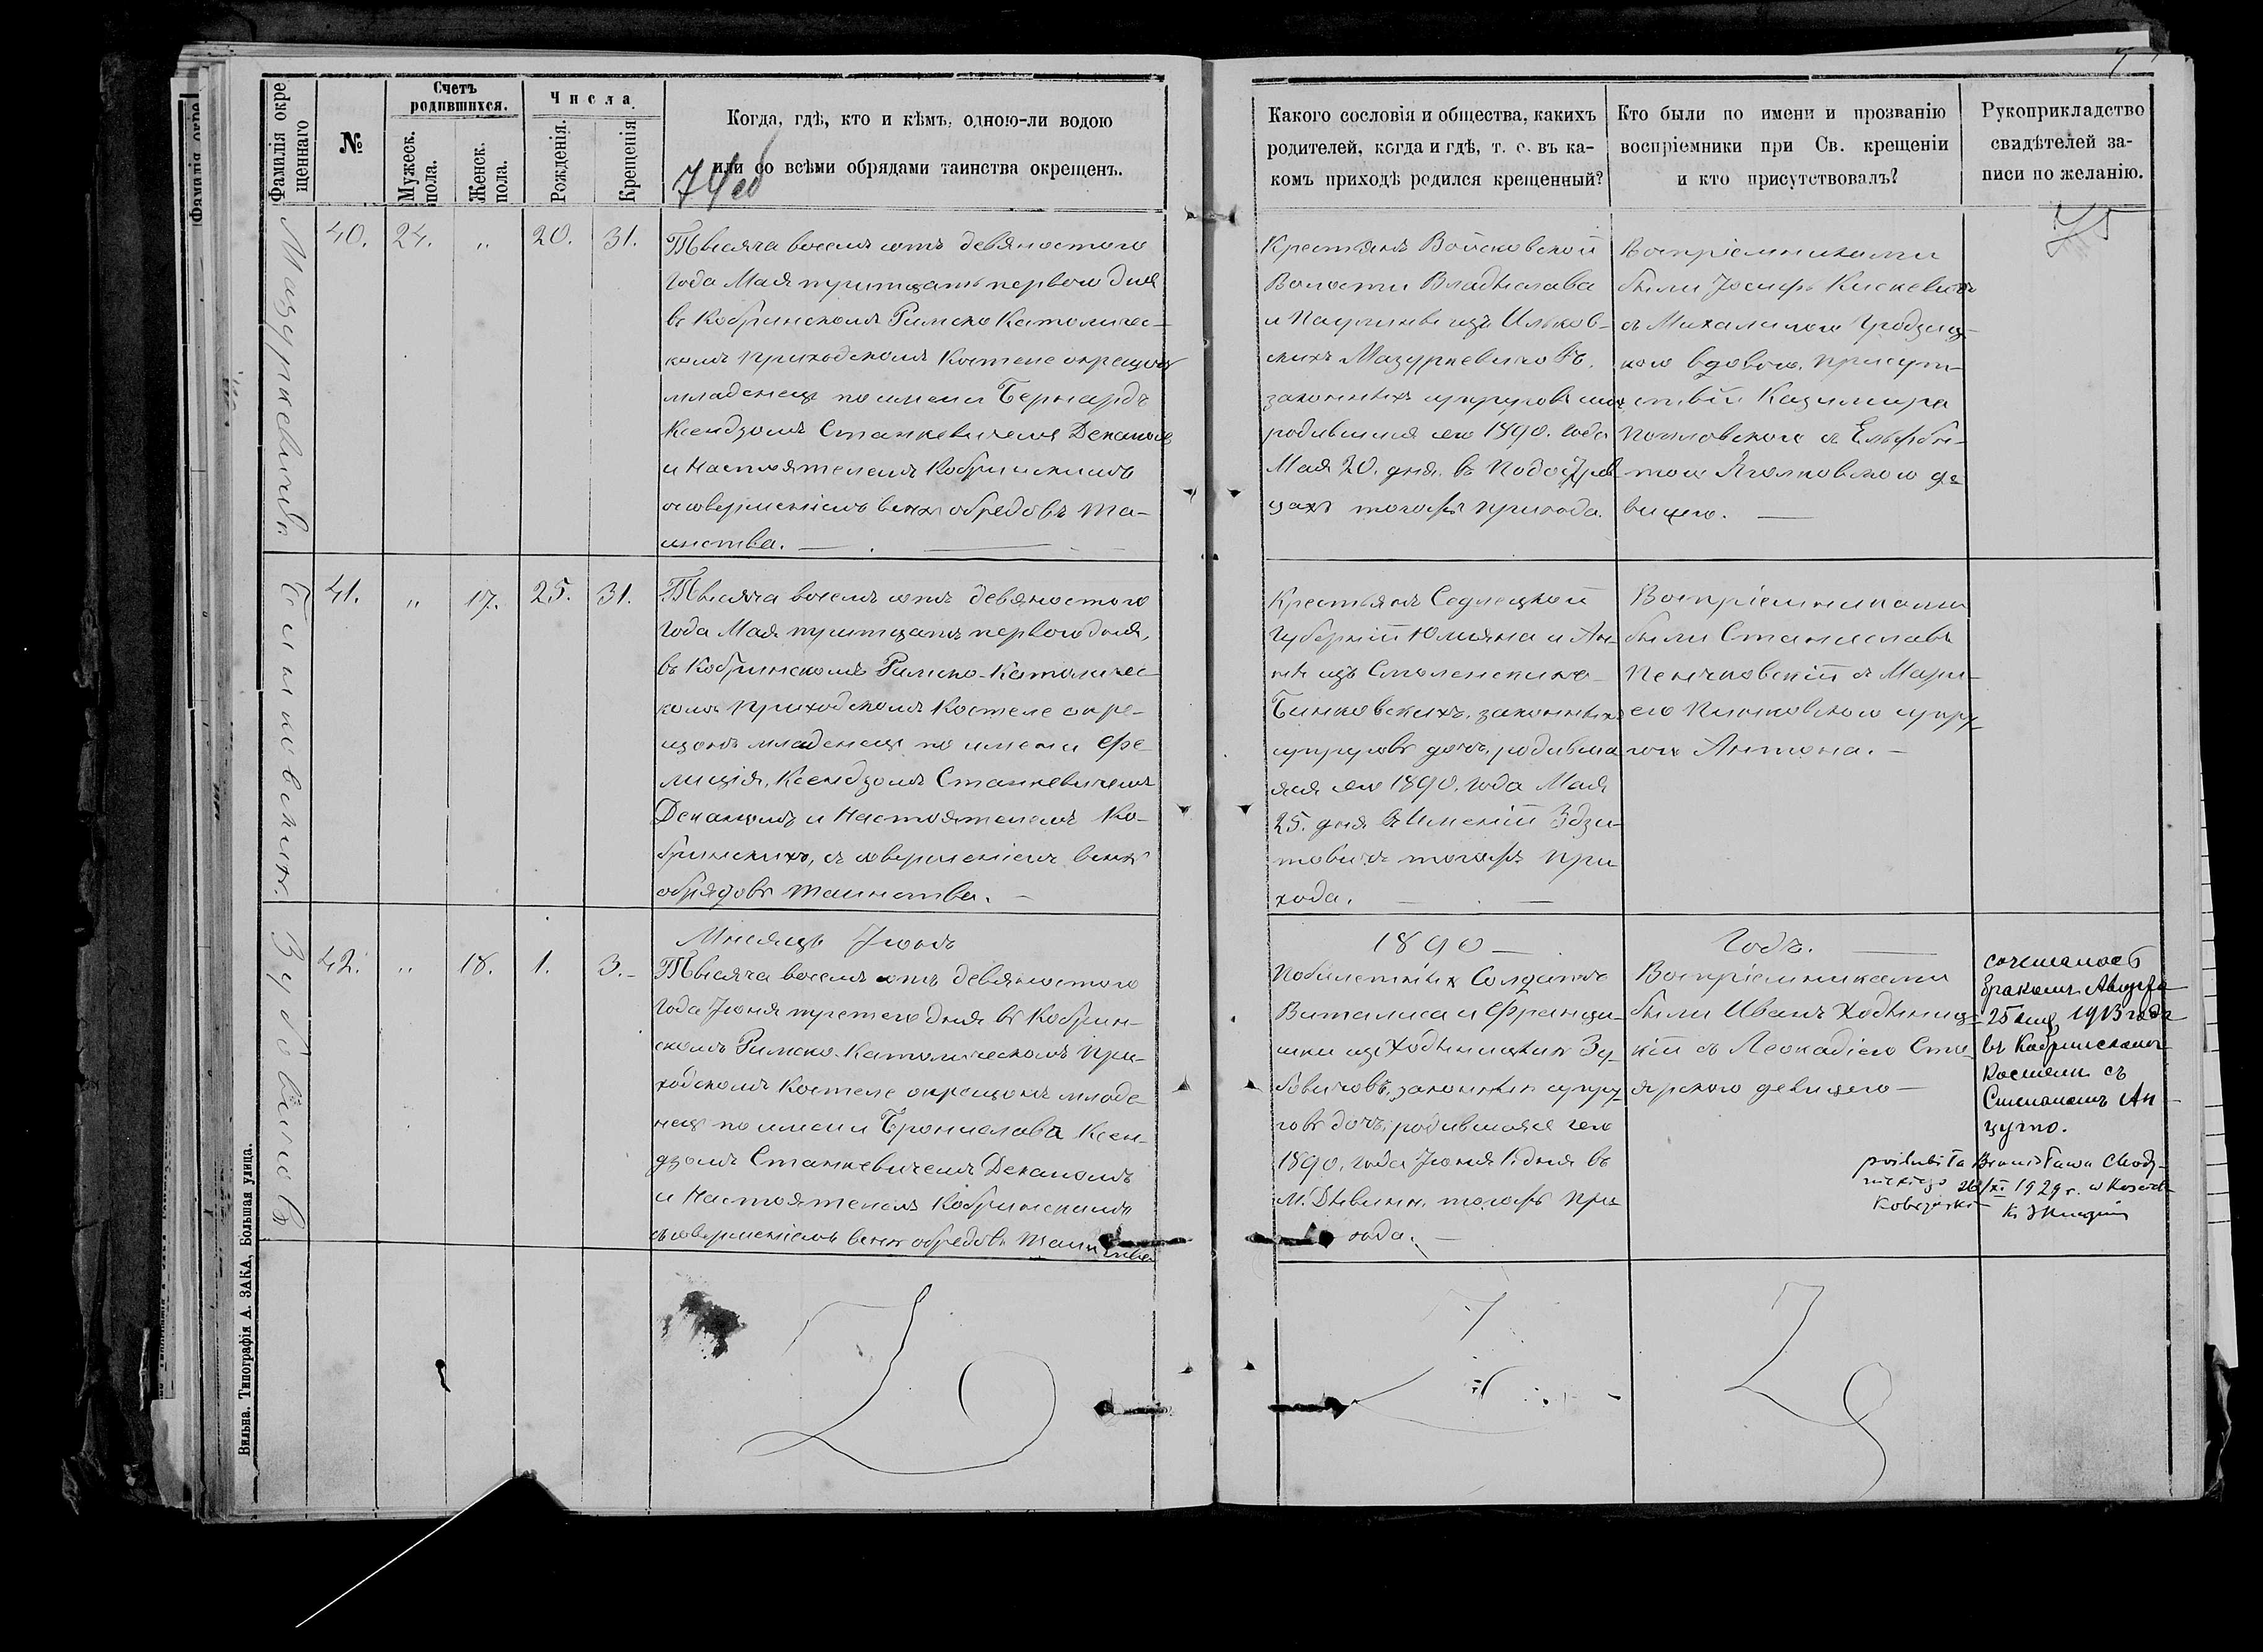 Фамилія окре
щеннаго
№
Счетъ
родившихся.
Мужеск.
пола.
Женск.
пола.
Числа
Рожденія.
Крещенія
Когда, гдѣ, кто и кѣмъ, одною-ли водою
или со всѣми обрядами таинства окрещенъ.
74об
Мазуркевичъ.
40.
24.
"
20.
31.
Тысяча восемь сотъ девяностого
года Мая тритцать первого дня
въ Кобринскомъ Римско Католичес-
комъ приходскомъ Костеле окрещонъ
младенецъ по имени Бернардъ
Ксендзомъ Станкевичемъ Деканомъ
и Настоятелемъ Кобринскимъ
о совершеніемъ всехъ обредовъ та-
инства.
Бинковскихъ.
41.
"
17.
25.
31.
Тысяча восемь сотъ девяностого
года Мая тритцать первого дня,
въ Кобринскомъ Римско-Католичес-
комъ приходскомъ Костеле окре-
щонъ младенецъ по имени Фе-
лиція, Ксендзомъ Станкевичемъ
Деканомъ и Настоятелемъ Ко-
бринскихъ, съ совершеніемъ всехъ
обрядовъ таинства.
Зубовичовъ
42.
"
18.
1.
3.
Мѣсяцъ Іюнь
Тысяча восемь сотъ девяностого
года Іюня третего дня въ Кобрин-
скомъ Римско-Католическомъ при-
ходскомъ Костеле окрещонъ младе-
нецъ по имени Брониславъа Ксен-
дзомъ Станкевичемъ Деканомъ
и Настоятелемъ Кобринскимъ
съ совершеніемъ всехъ обредовъ таинства
Вильна. Типографія А. ЗАКА, Большая улица.
Какого сословія и общества, какихъ
родителей, когда и гдѣ, т. е. въ ка-
комъ приходѣ родился крещенный?
Кто были по имени и прозванію
воспріемники при Св. крещеніи
и кто присутствовалъ?
Рукоприкладство
свидѣтелей за-
писи по желанію.
75
Крестьянъ Войсковской
Волости Владыслава
и Паулины изъ Ильков-
скихъ Мазуркевичовъ.
законныхъ супруговъ сынъ
родившийся 1890. года
Мая 20. дня въ
цахъ тогожъ прихода.
Воспріемниками
были Іосифъ Кискевичъ
съ Михалиною Гродзиц-
кою вдовою. присут-
ствіи Казимира
Козловского съ Ельжбѣ-
тою Яголковскою де-
вицею.
Крестьянъ Седлецкой
Губерніи Юльяна и Ан-
ны изъ Смоленскихъ
Бинковскихъ, законныхъ
супруговъ дочь, родивша
яся 1890. года Мая
25. дня въ Именіи Здзи-
товичъ тогожъ при
хода.
Воспріемниками
были Станиславъ
Пенчковскій съ Мари-
ею Пинковскою супру-
гою Антона.
1890
Годъ.
Побилетныхъ Солдатъ
Виталиса и Францыи-
шки изъ Ходыницкихъ Зу-
бовичовъ, законныхъ супру-
говъ дочь, родившаяся
1890. года Іюня 1 дня въ
м. Дывинъ. тогожъ при-
хода.
Воспріемниками
были Иванъ Ходыниц-
кій съ Леокадіею Сто-
ярскою девицею
сочеталась
бракомъ Августа
25 дня, 1913 года
въ Кобринскомъ
Костелѣ съ
Степаномъ Ан-
цутo.
poślubiła Bronisława Chody-
nickiego 26/XI 1929 r. w Kościele
Kobryńskim